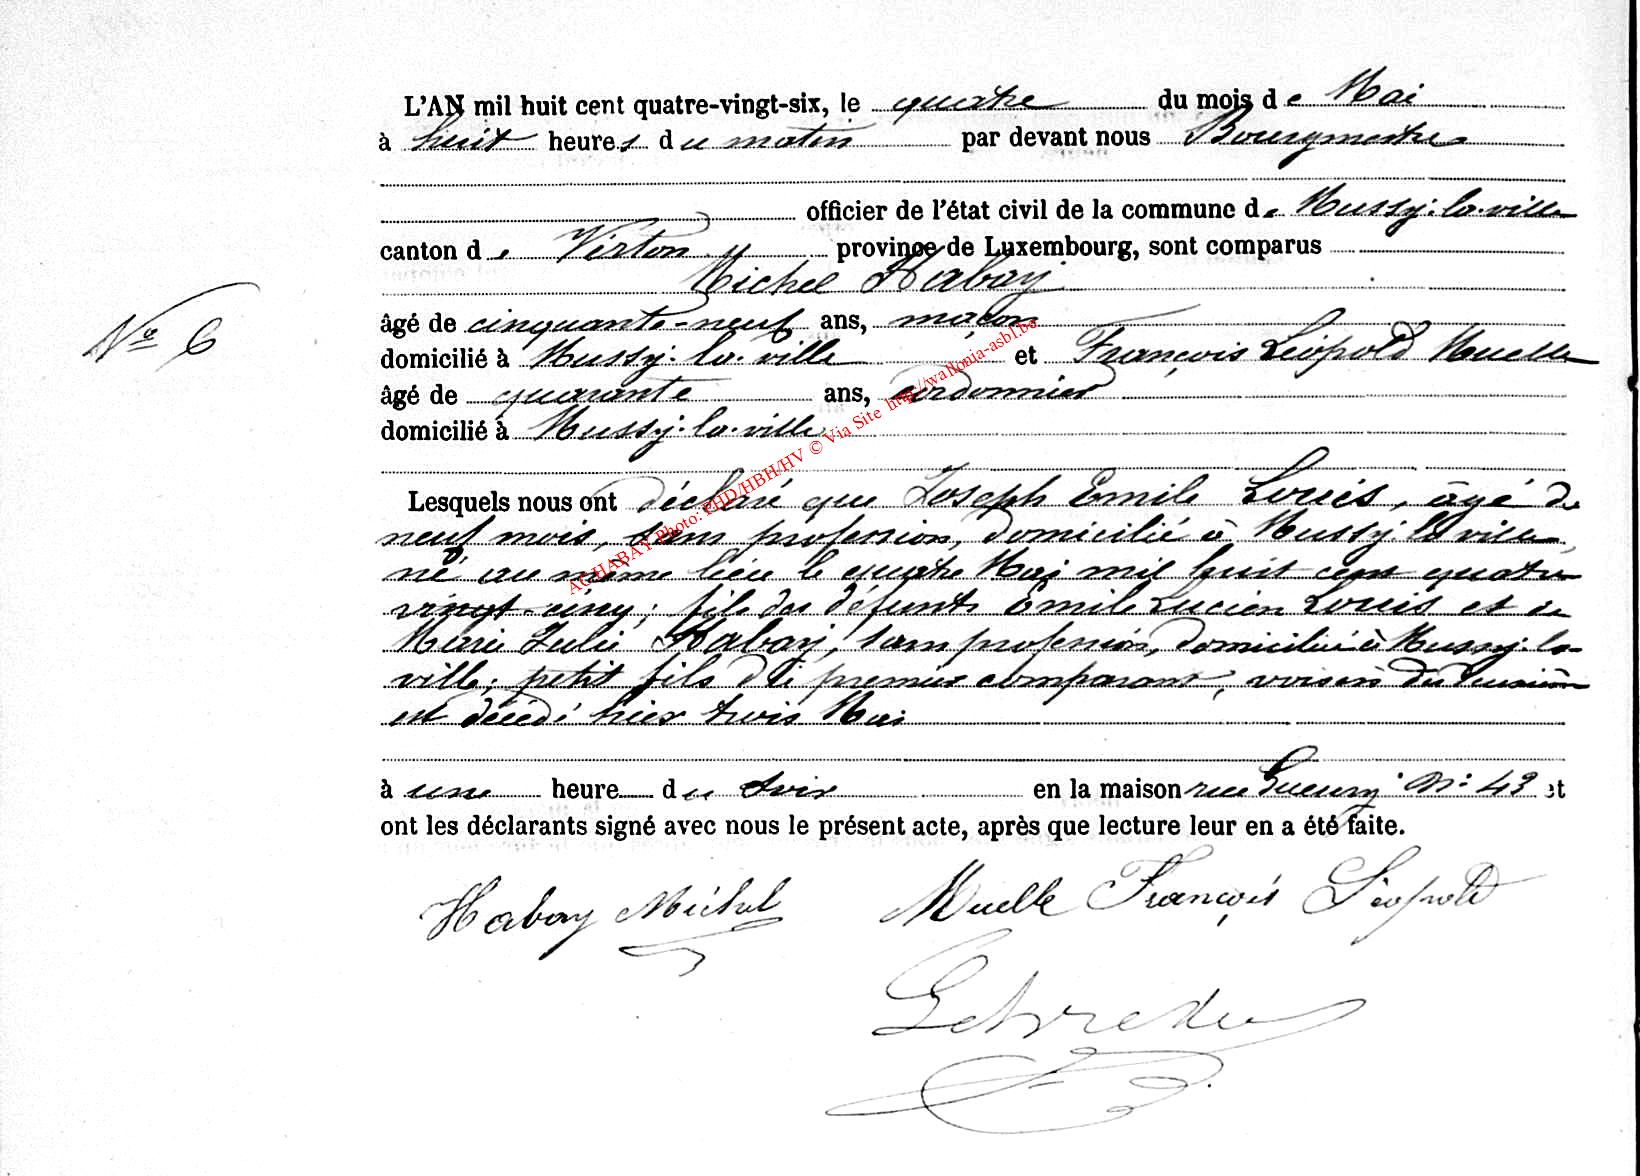 L'AN mil huit cent quatre-vingt-six, le quatre du mois de Mai
à huit heures du matin par devant nous Bourgmestre
officier de l'état civil de la commune de Mussy-la-ville
canton de Virton province de Luxembourg, sont comparus
Michel Habay
âgé de cinquante-neuf ans, maçon
N° 6
domicilié à Mussy-la-ville et François Léopold Muelle
âgé de quarante ans, cordonnier
domicilié à Mussy-la-ville
AC HABAY Photo: PHD/HBH/HV © Via Site http://wallonia-asbl.be
Lesquels nous ont déclaré que Joseph Emile Louis, âgé de
neuf mois, sans profession, domicilié à Mussy-la-ville,
né au même lieu le quatre Mai mil huit cent quatre
vingt-cinq; fils des défunts Emile Lucien Louis et de
Marie Julie Habay, sans profession, domiciliée à Mussy-la-
ville; petit fils du premier comparant, voisin du deuxième
est décédé hier trois Mai
à une heure du soir en la maison rue N° 43 et
ont les déclarants signé avec nous le présent acte, après que lecture leur en a été faite.
Habay Michel Muelle François Léopold